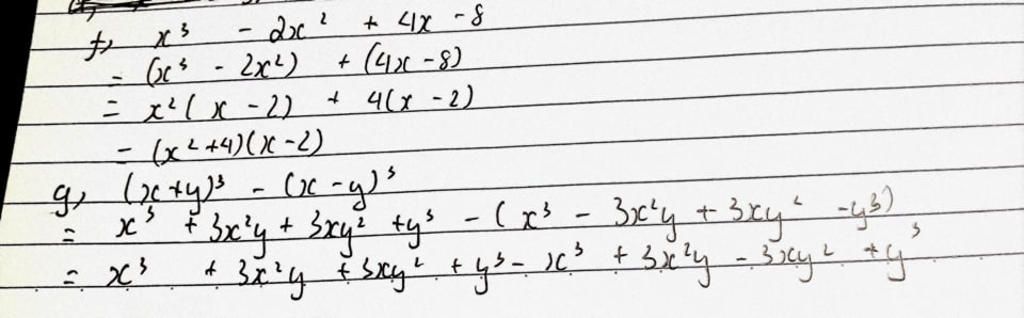 f, x³ - 2x² + 4x - 8
= (x³ - 2x²) + (4x - 8)
= x²(x - 2) + 4(x - 2)
= (x² + 4)(x - 2)
g, (x + y)³ - (x - y)³
= x³ + 3x²y + 3xy² + y³ - (x³ - 3x²y + 3xy² - y³)
= x³ + 3x²y + 3xy² + y³ - x³ + 3x²y - 3xy² + y³